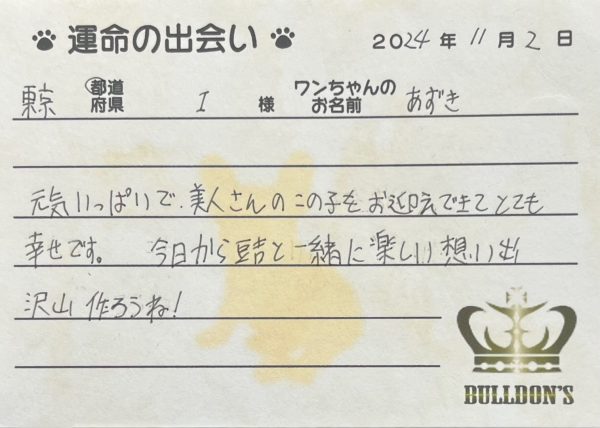 運命の出会い 2024年11月2日
東京 都道府県 I 様 ワンちゃんのお名前 あずき
元気いっぱいで、美人さんのこの子をお迎えできてとても
幸せです。 今日から豆吉と一緒に楽しい想い出
沢山作ろうね!
BULLDON'S